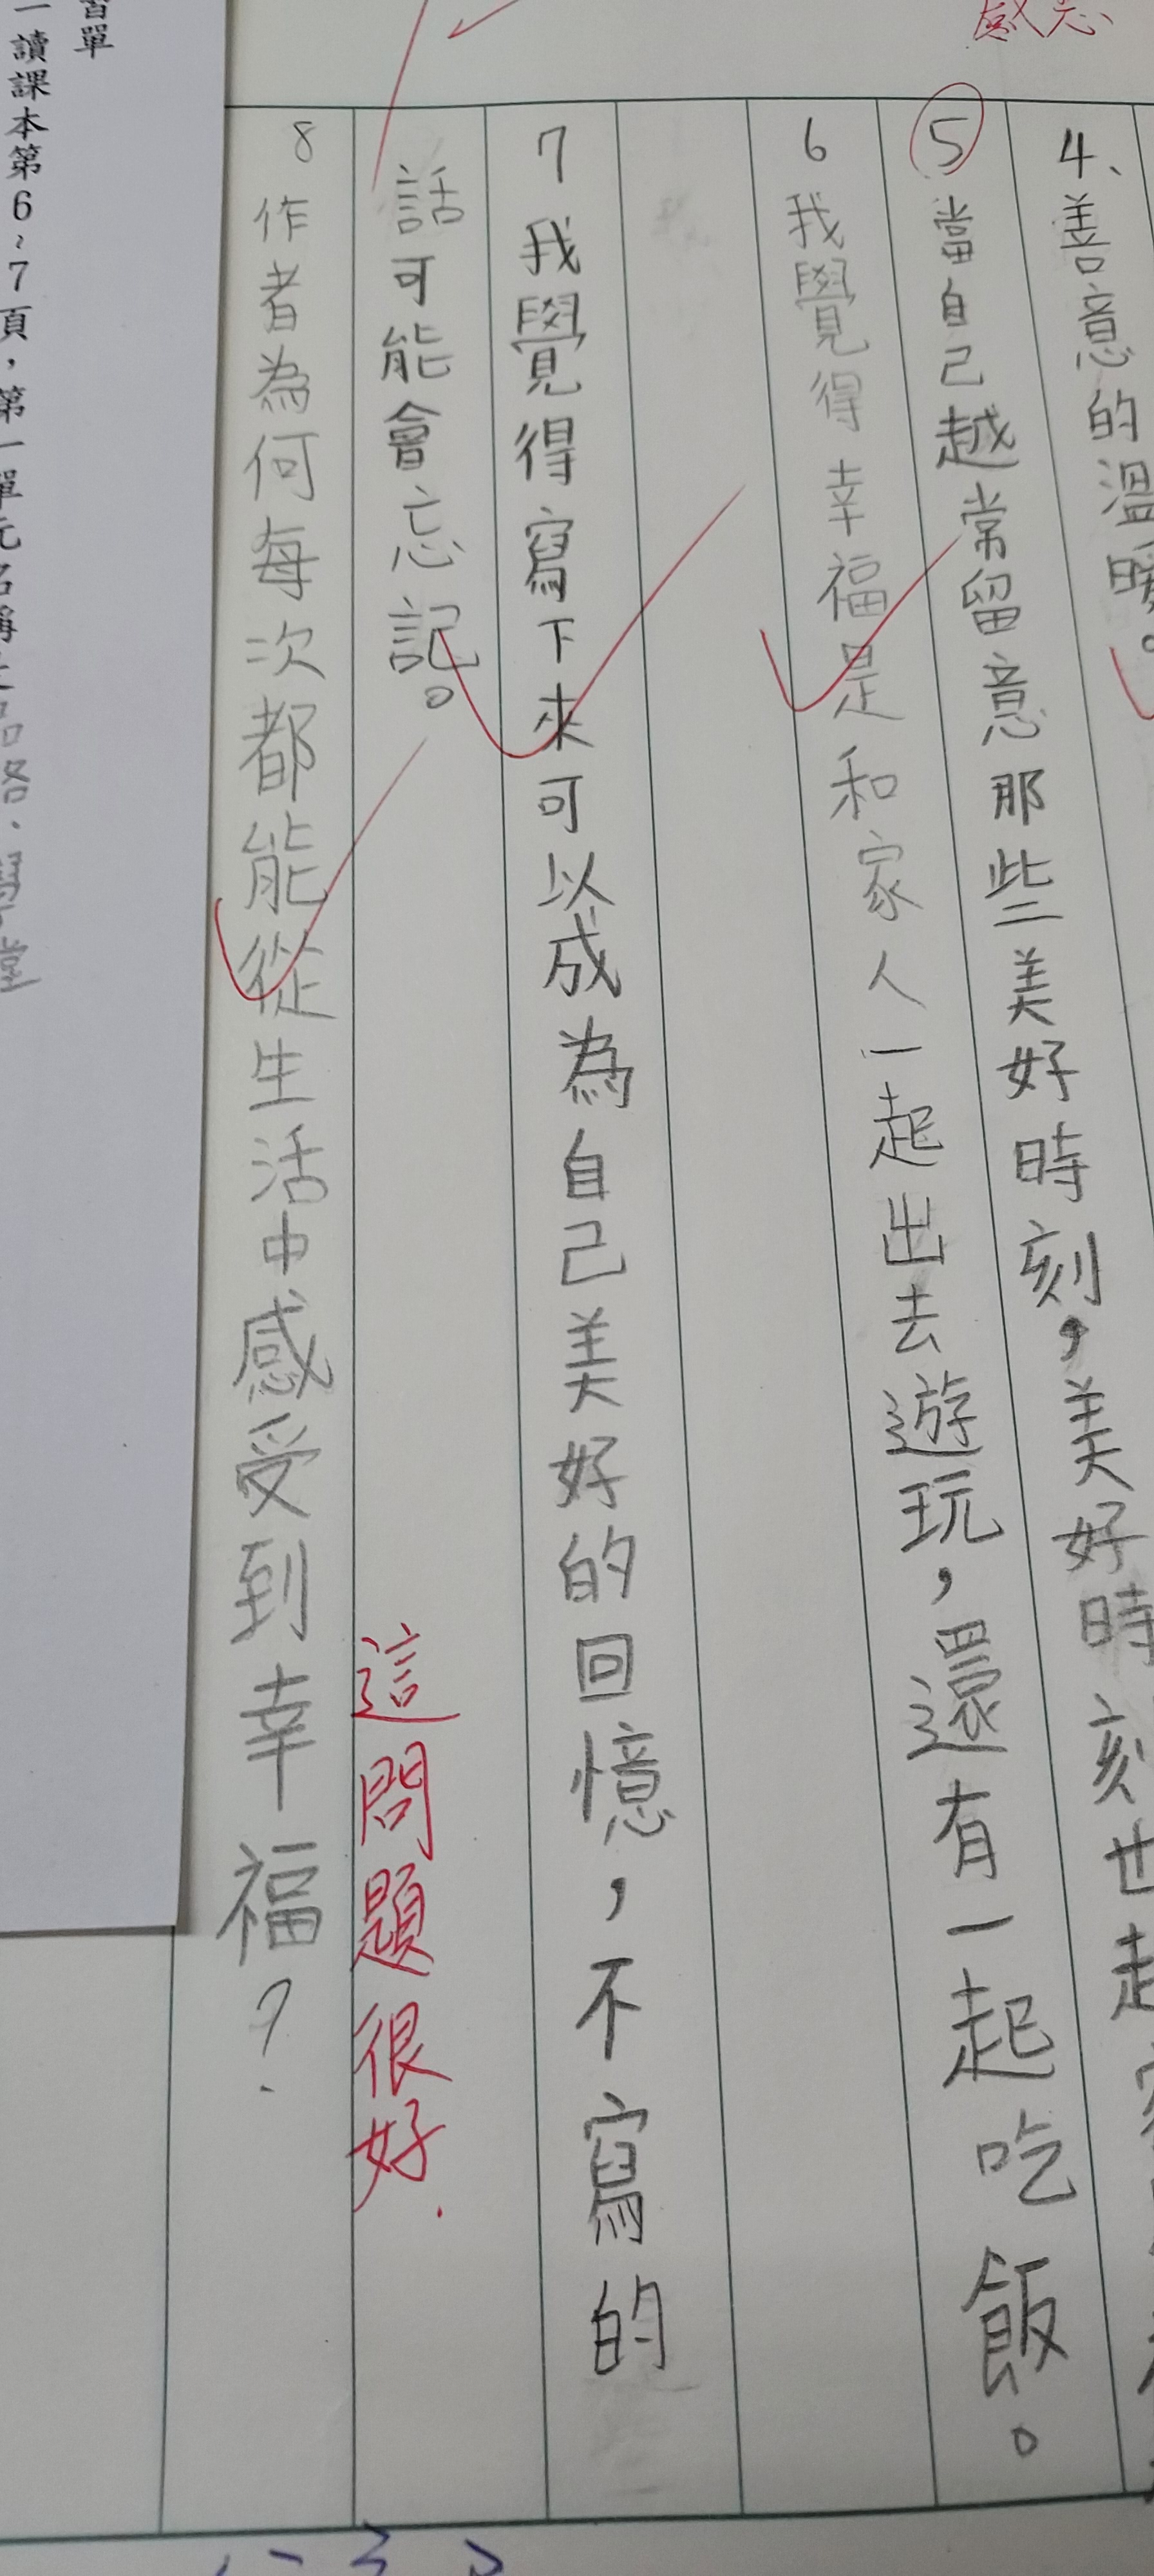 感
4、善意的溫暖。
⑤當自己越常留意那些美好時刻，美好時刻也
6 我覺得幸福是和家人一起出去遊玩，還有一起吃飯。
7 我覺得寫下來可以成為自己美好的回憶，不寫的
話可能會忘記。
這問題很好.
8 作者為何每次都能從生活中感受到幸福？
習單
一讀課本第6~7頁，第一單元名稱